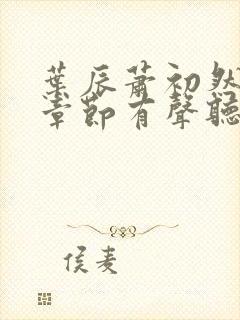 葉辰蕭初然
章節有聲聽
侯麦